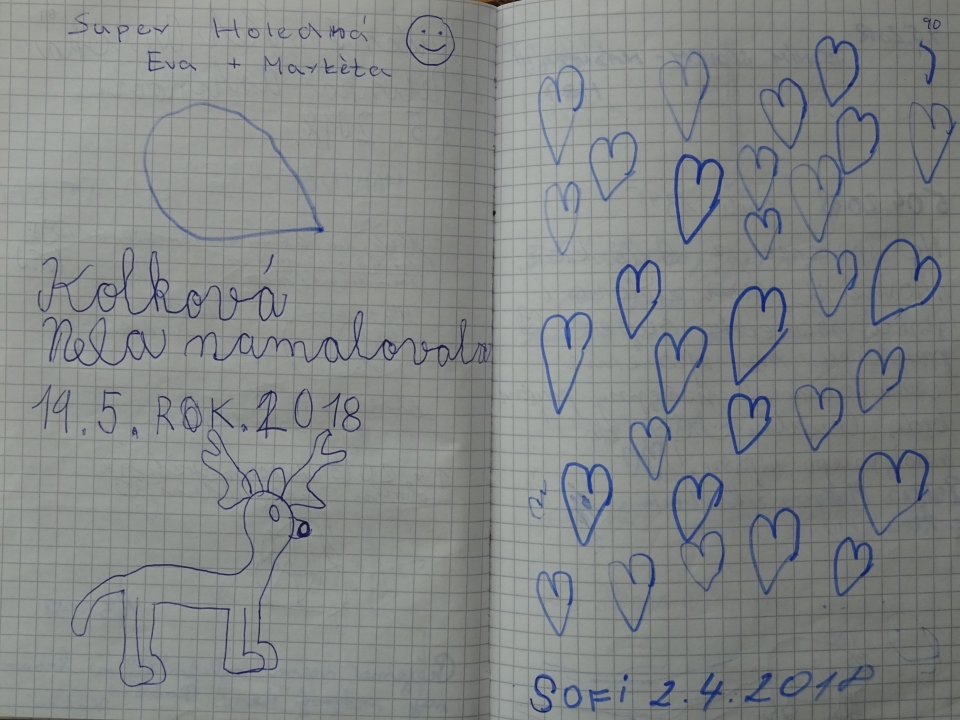 Super Holedná
Eva + Markéta
Kolková
Nela namalovala
19.5. ROK.2018
90
SOFi 2.4.2018